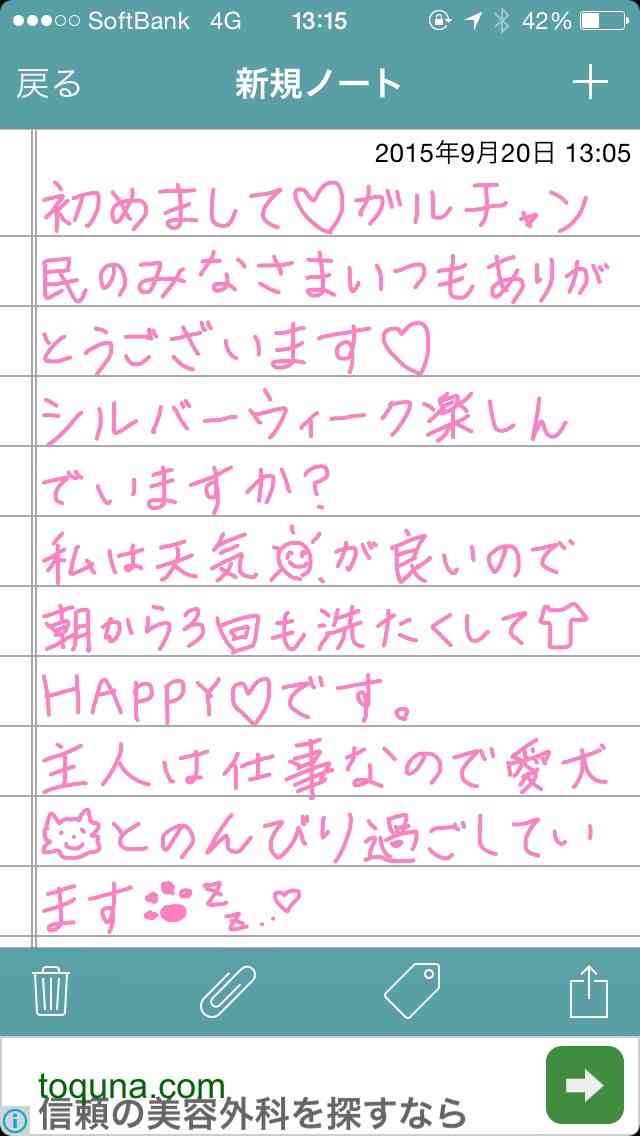 SoftBank 4G 13:15 42%
戻る 新規ノート
2015年9月20日 13:05
初めまして♡ガルチャン
民のみなさまいつもありが
とうございます♡
シルバーウィーク楽しん
でいますか?
私は天気が良いので
朝から3回も洗たくして
HAPPY♡です。
主人は仕事なので愛犬
とのんびり過ごしてい
ます zz..♡
toquna.com
信頼の美容外科を探すなら